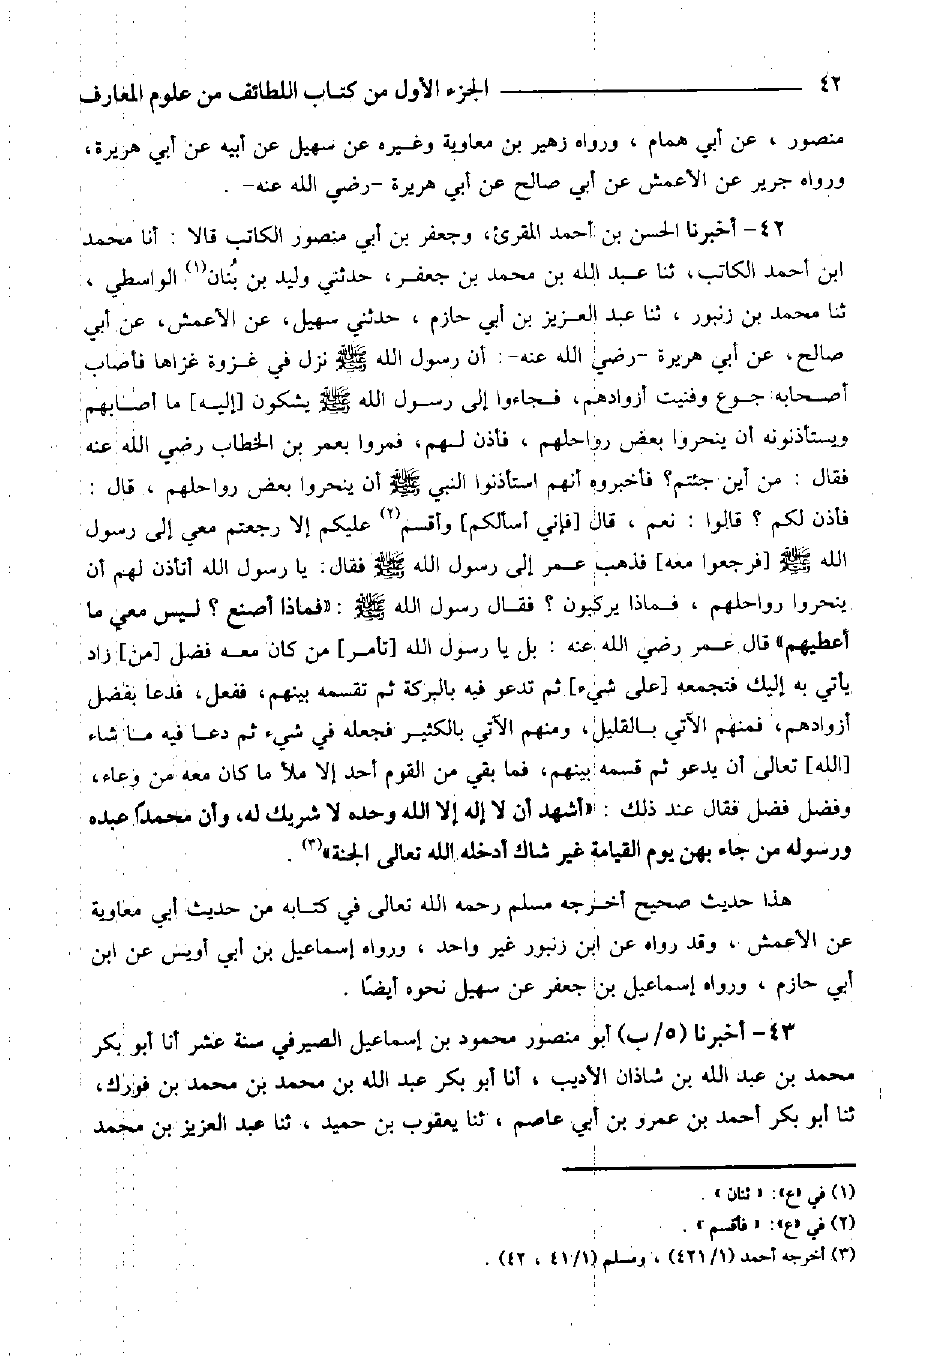 ٤٢ الجزء الأول من كتاب اللطائف من علوم المعارف
منصور ، عن أبي همام ، ورواه زهير بن معاوية وغيره عن سهيل عن أبيه عن أبي هريرة،
ورواه جرير عن الأعمش عن أبي صالح عن أبي هريرة -رضي الله عنه- .
٤٢- أخبرنا الحسن بن أحمد المقرئ، وجعفر بن أبي منصور الكاتب قالا : أنا محمد
ابن أحمد الكاتب، ثنا عبد الله بن محمد بن جعفر، حدثني وليد بن بُنان(١) الواسطي ،
ثنا محمد بن زنبور ، ثنا عبد العزيز بن أبي حازم ، حدثني سهيل، عن الأعمش، عن أبي
صالح، عن أبي هريرة -رضي الله عنه-: أن رسول الله ﷺ نزل في غزوة غزاها فأصاب
أصحابه جوع وفنيت أزوادهم، فجاءوا إلى رسول الله ﷺ يشكون [إليه] ما أصابهم
ويستأذنونه أن ينحروا بعض رواحلهم ، فأذن لهم، فمروا بعمر بن الخطاب رضي الله عنه
فقال : من أين جئتم؟ فأخبروه أنهم استأذنوا النبي ﷺ أن ينحروا بعض رواحلهم ، قال :
فأذن لكم ؟ قالوا : نعم ، قال [فإني أسألكم] وأقسم(٢) عليكم إلا رجعتم معي إلى رسول
الله ﷺ [فرجعوا معه] فذهب عمر إلى رسول الله ﷺ فقال: يا رسول الله أتأذن لهم أن
ينحروا رواحلهم ، فماذا يركبون ؟ فقال رسول الله ﷺ : «فماذا أصنع ؟ ليس معي ما
أعطيهم» قال عمر رضي الله عنه : بل يا رسول الله [تأمر] من كان معه فضل [من] زاد
يأتي به إليك فتجمعه [على شيء] ثم تدعو فيه بالبركة ثم تقسمه بينهم، ففعل، فدعا بفضل
أزوادهم، فمنهم الآتي بالقليل، ومنهم الآتي بالكثير فجعله في شيء ثم دعا فيه ما شاء
[الله] تعالى أن يدعو ثم قسمه بينهم، فما بقي من القوم أحد إلا ملأ ما كان معه من وعاء،
وفضل فضل فقال عند ذلك : «أشهد أن لا إله إلا الله وحده لا شريك له، وأن محمدًا عبده
ورسوله من جاء بهن يوم القيامة غير شاك أدخله الله تعالى الجنة»(٣) .
هذا حديث صحيح أخرجه مسلم رحمه الله تعالى في كتابه من حديث أبي معاوية
عن الأعمش ، وقد رواه عن ابن زنبور غير واحد ، ورواه إسماعيل بن أبي أويس عن ابن
أبي حازم ، ورواه إسماعيل بن جعفر عن سهيل نحوه أيضًا .
٤٣- أخبرنا (٥/ب) أبو منصور محمود بن إسماعيل الصيرفي سنة عشر أنا أبو بكر
محمد بن عبد الله بن شاذان الأديب ، أنا أبو بكر عبد الله بن محمد بن محمد بن فورك،
ثنا أبو بكر أحمد بن عمرو بن أبي عاصم ، ثنا يعقوب بن حميد ، ثنا عبد العزيز بن محمد
(١) في «ع»: « ثنان » .
(٢) في «ع»: « فأقسم » .
(٣) أخرجه أحمد (٤٢١/١) ، ومسلم (٤١/١ ، ٤٢) .